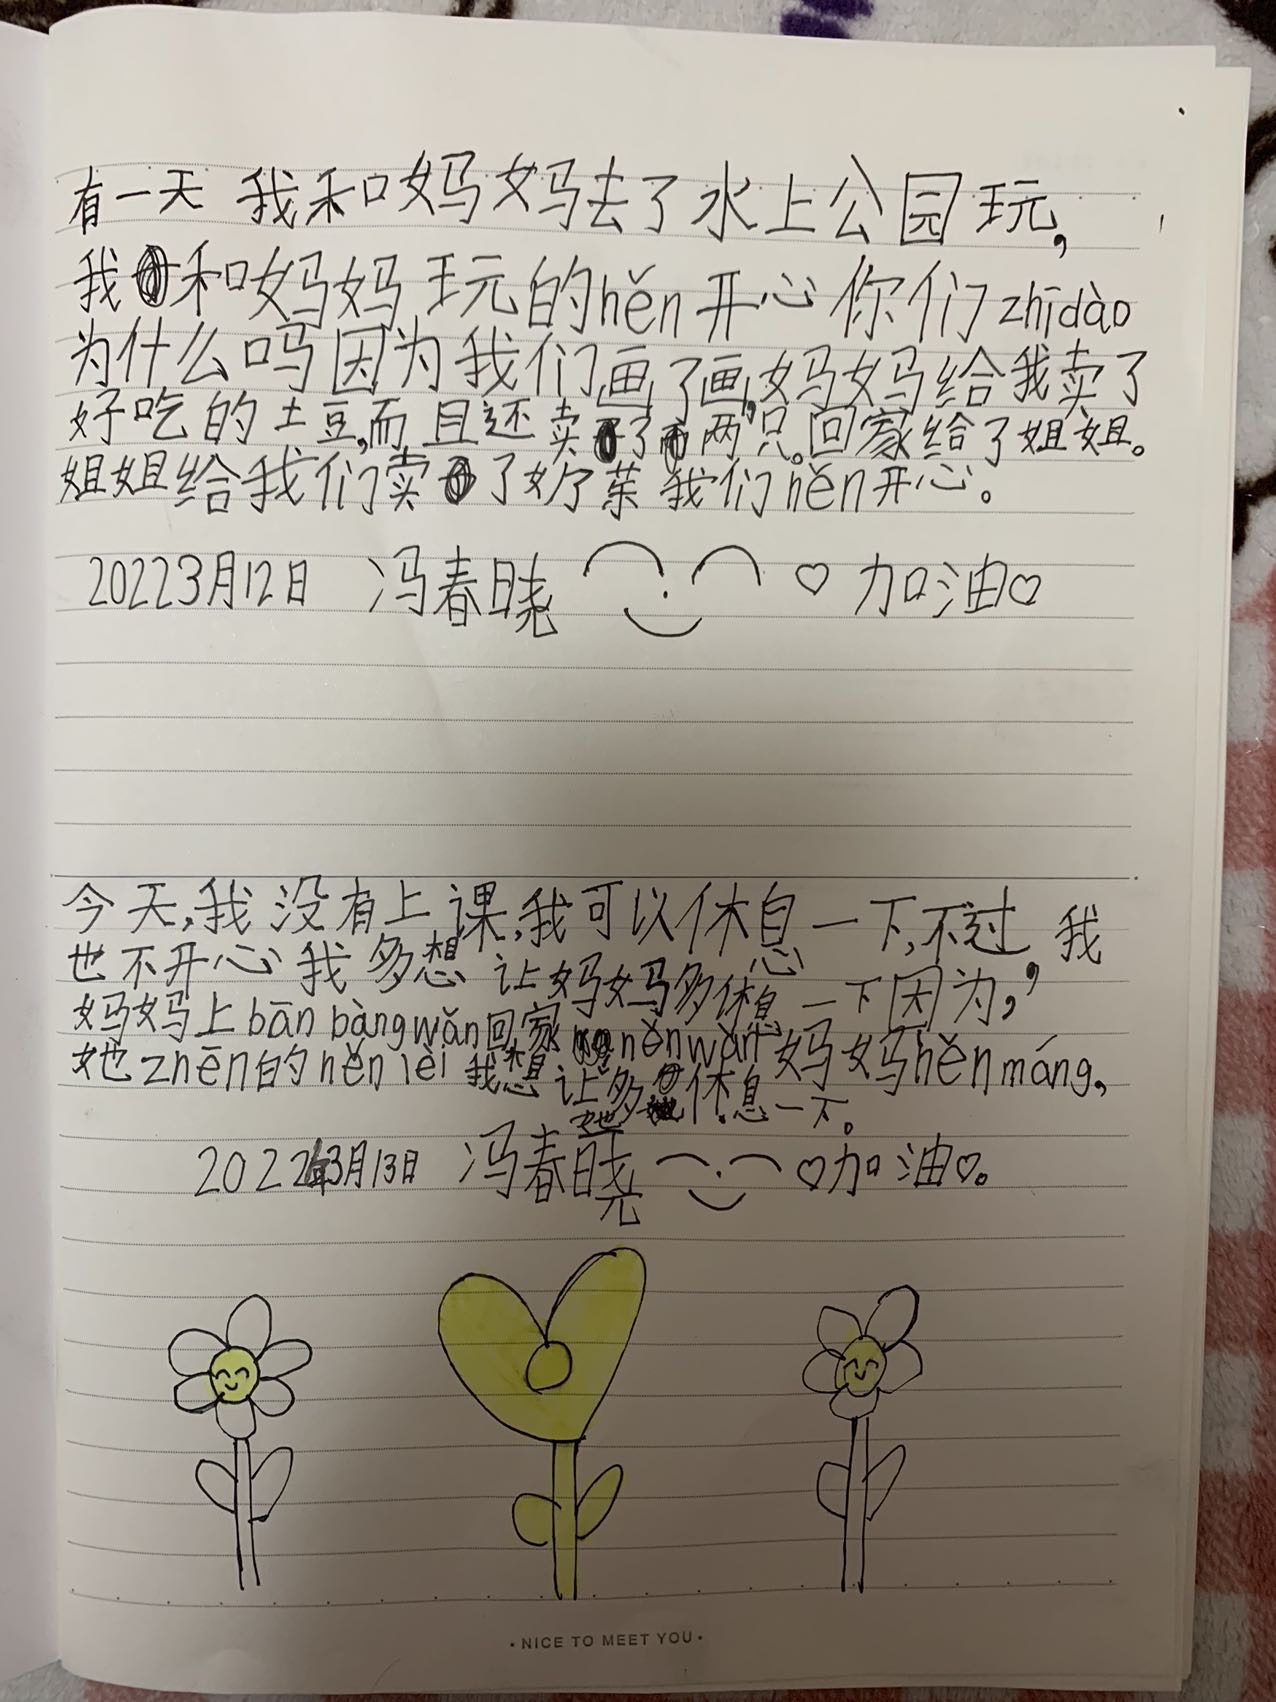 有一天 我和妈妈去了水上公园玩,
我和妈妈玩的hěn开心你们zhīdào
为什么吗因为我们画了画,妈妈给我卖了
好吃的土豆,而且还卖了两只。回家给了姐姐。
姐姐给我们卖了好菜我们hěn开心。
20223月12日 冯春晓 ♡加油♡
今天,我没有上课,我可以休息一下,不过,我
也不开心我多想让妈妈多休息一下因为,
妈妈上bān bàngwǎn回家 hěnwǎn妈妈hěnmáng,
她zhēn的hěn lèi 我想让她多休息一下。
2022年3月13日 冯春晓 ♡加油♡。
•NICE TO MEET YOU•